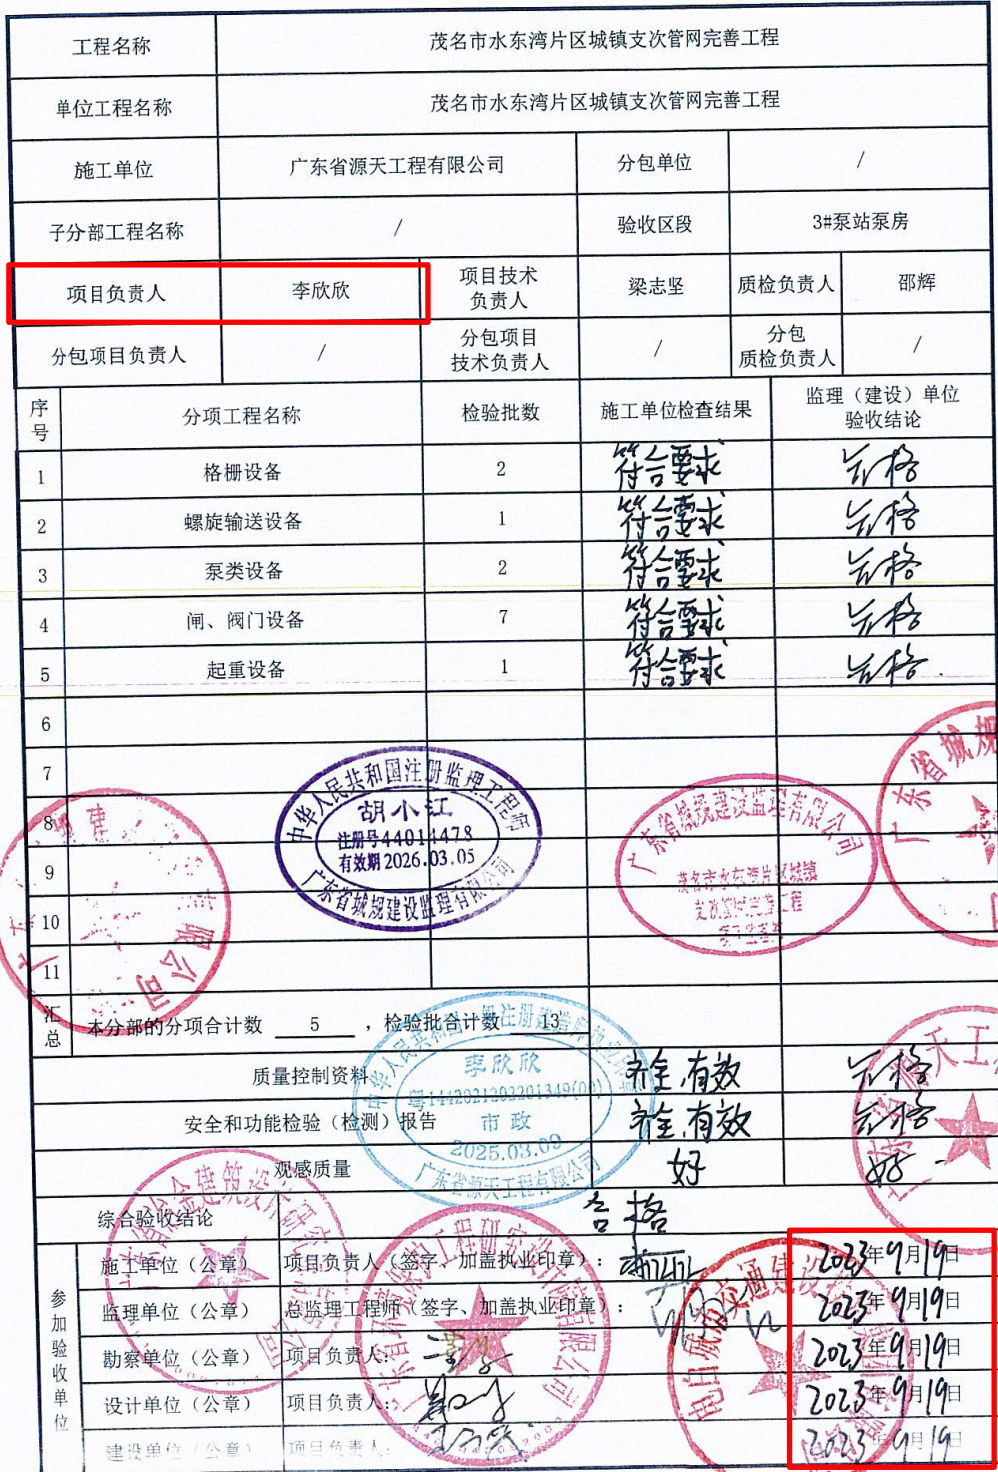 工程名称 茂名市水东湾片区城镇支次管网完善工程
单位工程名称 茂名市水东湾片区城镇支次管网完善工程
施工单位 广东省源天工程有限公司 分包单位 /
子分部工程名称 / 验收区段 3#泵站泵房
项目负责人 李欣欣 项目技术负责人 梁志坚 质检负责人 邵辉
分包项目负责人 / 分包项目技术负责人 / 分包质检负责人 /
序号 分项工程名称 检验批数 施工单位检查结果 监理（建设）单位验收结论
1 格栅设备 2 符合要求 合格
2 螺旋输送设备 1 符合要求 合格
3 泵类设备 2 符合要求 合格
4 闸、阀门设备 7 符合要求 合格
5 起重设备 1 符合要求 合格
6
7
8
9
10
11
中华人民共和国注册监理工程师
胡小江
注册号44014478
有效期2026.03.05
广东省城规建设监理有限公司
广东省城规建设监理有限公司
茂名市水东湾片区城镇
支次管网完善工程
广东省城规
限公司
汇总 本分部的分项合计数 5 ，检验批合计数 13
质量控制资料 齐全,有效 合格
安全和功能检验（检测）报告 齐全,有效 合格
观感质量 好 好
中华人民共和国一级注册建造师执业印章
李欣欣
粤1442021202201349(00)
市政
2025.03.09
广东省源天工程有限公司
综合验收结论 合格
参加验收单位
施工单位（公章） 项目负责人（签字、加盖执业印章）： 2023年9月19日
监理单位（公章） 总监理工程师（签字、加盖执业印章）： 2023年9月19日
勘察单位（公章） 项目负责人： 2023年9月19日
设计单位（公章） 项目负责人： 2023年9月19日
建设单位（公章） 项目负责人： 2023年9月19日